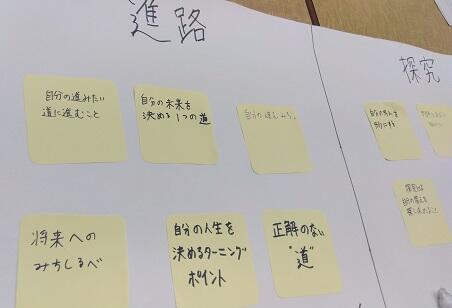 進路
自分の進みたい
道に進むこと
自分の未来を
決める1つの道
自分の進むみち。
将来への
みちしるべ
自分の人生を
決めるターニング
ポイント
正解のない
"道"
探究
探究は